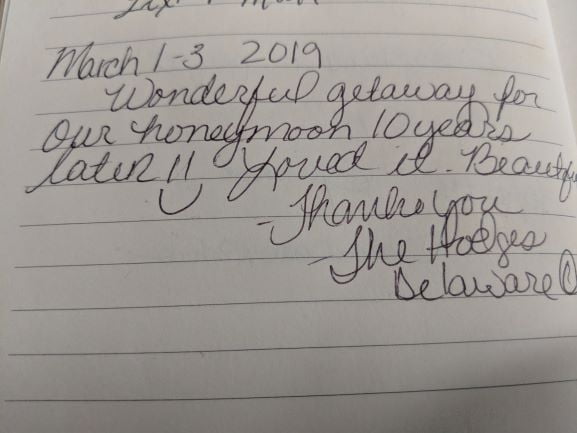 March 1-3 2019
Wonderful getaway for
our honeymoon 10 years
later!! Loved it. Beautifu
- Thank you
- The Hodges
Delaware